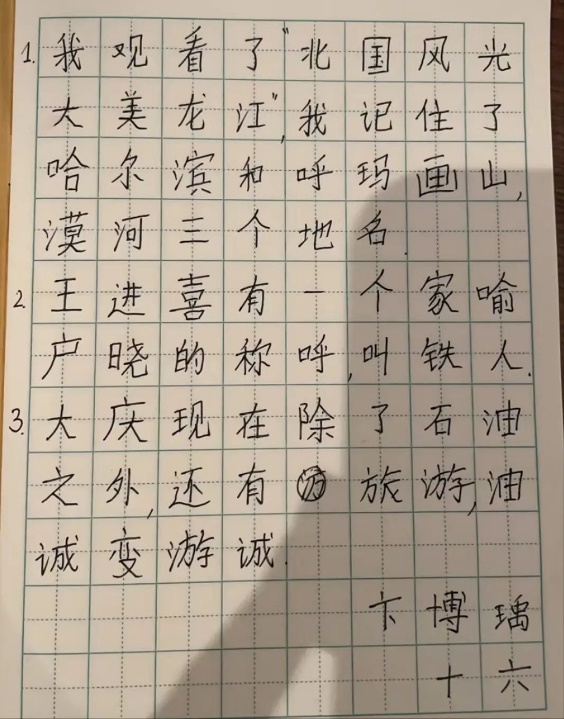 1. 我观看了"北国风光
大美龙江",我记住了
哈尔滨和呼玛画山,
漠河三个地名.
2. 王进喜有一个家喻
户晓的称呼,叫铁人.
3. 大庆现在除了石油
之外,还有旅游,油
诚变游诚.
卞博瑀
十六